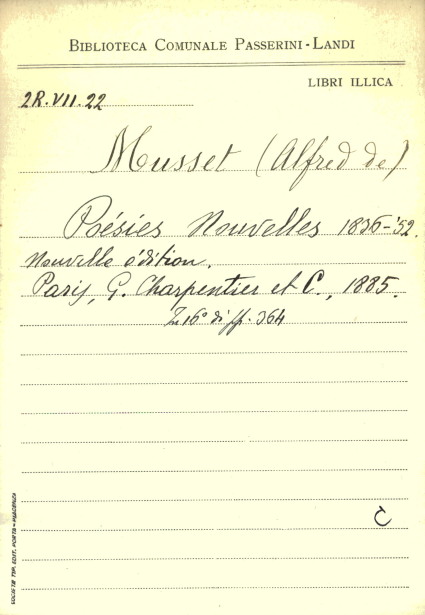 BIBLIOTECA COMUNALE PASSERINI-LANDI
LIBRI ILLICA
2R.VII.22
Musset (Alfred de)
Poésies Nouvelles 1836-'52.
Nouvelle édition.
Paris, G. Charpentier et C., 1885.
In 16° di pp. 364
C
SOCIETÀ TIP. EDIT. PORTA - PIACENZA